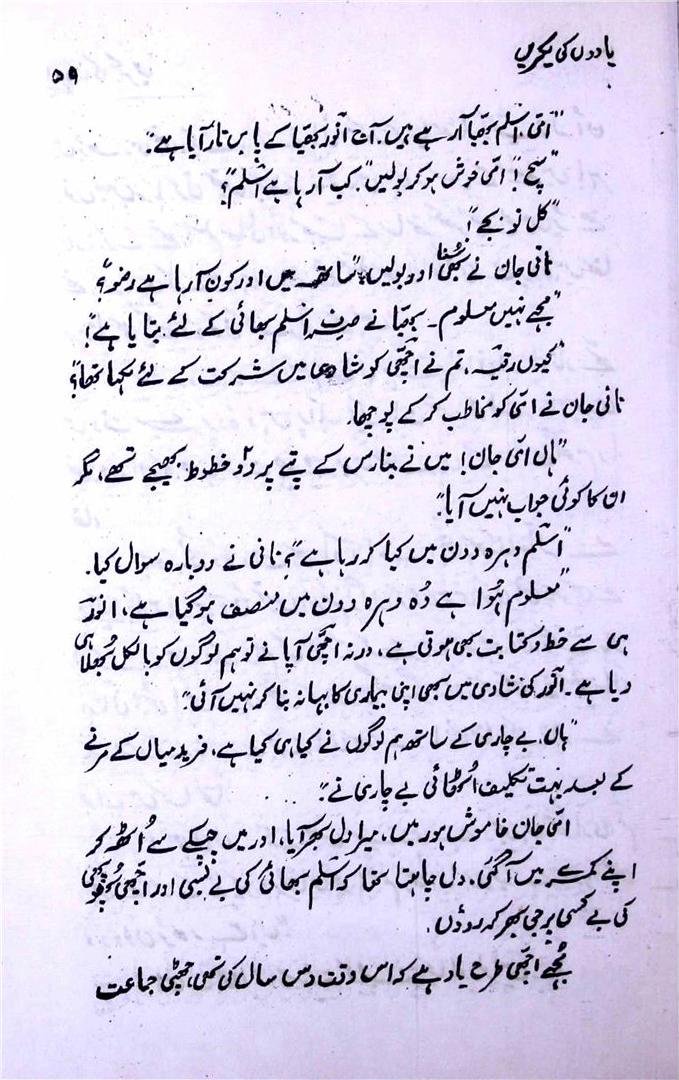 یادوں کی لکیریں
۵۹
"امّی، اسلم بھیّا آرہے ہیں۔ آج انور بھیّا کے پاس تار آیا ہے"۔
"سچ"! امّی خوش ہوکر بولیں" کب آرہا ہے اسلم"؟
"کل نو بجے"!
نانی جان نے بھی سُنا اور بولیں، "ساتھ میں اور کون آرہا ہے رضو"؟
"مجھے نہیں معلوم۔ بھیّا نے صرف اسلم بھائی کے لئے بتایا ہے"!
"کیوں رقیہ، تم نے اچھّی کو شادی میں شرکت کے لئے لکھا تھا"؟
نانی جان نے امّی کو مخاطب کرکے پوچھا۔
"ہاں امّی جان! میں نے بنارس کے پتے پر دو خطوط بھیجے تھے، مگر
ان کا کوئی جواب نہیں آیا"۔
"اسلم دہرہ دون میں کیا کررہا ہے"؟ نانی نے دوبارہ سوال کیا۔
"معلوم ہُوا ہے وُہ دہرہ دون میں منصف ہوگیا ہے، انور
ہی سے خط و کتابت بھی ہوتی ہے، ورنہ اچھّی آپا نے تو ہم لوگوں کو بالکل بُھلا ہی
دیا ہے۔ انور کی شادی میں بھی اپنی بیماری کا بہانہ بناکر نہیں آئی"۔
"ہاں، بے چاری کے ساتھ ہم لوگوں نے کیا ہی کیا ہے، فرید میاں کے مرنے
کے بعد بہت تکلیف اُٹھائی بے چاری نے"۔
امّی جان خاموش ہورہیں، میرا دل بھر آیا، اور میں چپکے سے اُٹھ کر
اپنے کمرے میں آگئی۔ دل چاہتا تھا کہ اسلم بھائی کی بے بسی اور اچھّی پھوپھی
کی بے کسی پر جی بھر کر روؤں۔
مُجھے اچھّی طرح یاد ہے کہ اس وقت دس سال کی تھی، چھٹی جماعت